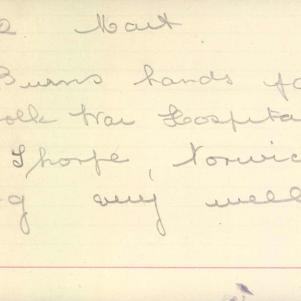 Mart
Burns hands fo
olk War Hospita
Thorpe, Norwic
g very well